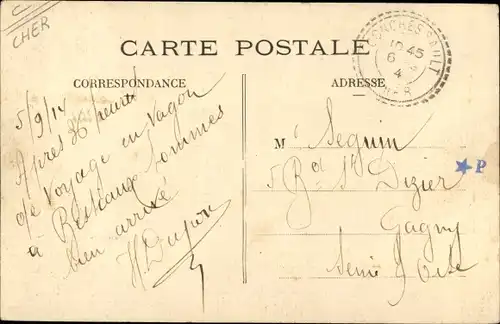 C
CHER
CARTE POSTALE
CORRESPONDANCE
ADRESSE
10 45
6
4
CHER
5/9/14
Après 36 heures
de voyage en vagon
à sommes
bien arrivé
H Dupon
Mr Seguin
5 Bd St Dizier
P
Gagny
Seine & Oise